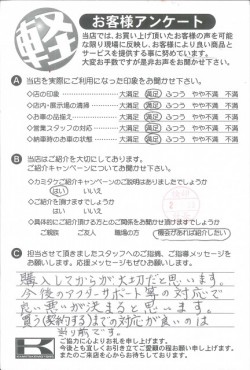 軽
お客様アンケート
当店では、お買い上げ頂いたお客様の声を可能
な限り現場に反映し、お客様により良い商品と
サービスを提供する事に努めています。
大変お手数ですが是非お声をお聞かせ下さい。
A 当店を実際にご利用になった印象をお聞かせ下さい。
◇店の印象 大満足 満足 ふつう やや不満 不満
◇店内・展示場の清掃 大満足 満足 ふつう やや不満 不満
◇お車の品揃え 大満足 満足 ふつう やや不満 不満
◇営業スタッフの対応 大満足 満足 ふつう やや不満 不満
◇納車時のお車の状態 大満足 満足 ふつう やや不満 不満
B 当店はご紹介を大切にしております。
ご紹介キャンペーンについてお聞かせ下さい。
◇カミタケご紹介キャンペーンのご説明はありましたでしょうか
はい いいえ
◇ご紹介を頂けますでしょうか
はい いいえ
◇具体的にご紹介頂ける方とのご関係をお聞かせ頂けますでしょうか
ご親族 ご友人 職場の方 機会があれば紹介したい
C 担当させて頂きましたスタッフへのご指摘、ご指導メッセージを
お願いします。応援メッセージもぜひお願いします。
購入してからが大切だと思います。
今後のアフターサポート等の対応で
良い悪いが決まると思います。
買う(契約する)までの対応が良いのは
当り前です。
ご協力に心よりお礼を申し上げます。
今後とも宜しくお引き立てご愛顧の程お願い申し上げます。
またのご来店を心からお待ちしております。